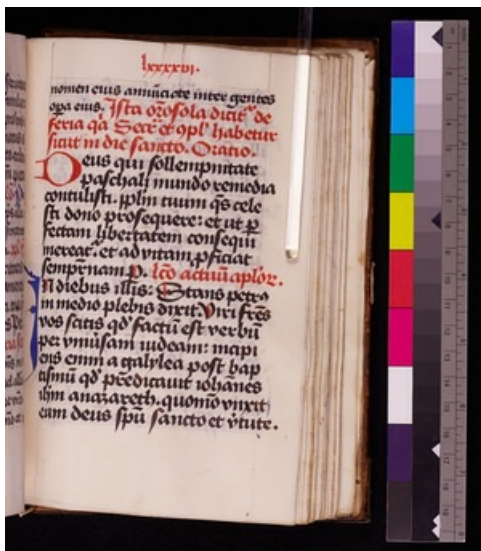 lxxxxvi.
nomen eius annūciate inter gentes
oꝑa eius. Ista orō sola dicit᷑ de
feria q̄a Secr̄ et ꝯpl̄ habetur
sicut in die sancto. Oratio.
Deus qui sollempnitate
paschali mundo remedia
contulisti. pplm̄ tuum q̄s cele
sti dono prosequere: et ut ꝑ
fectam libertatem consequi
mereat᷑. et ad vitam ꝓficiat
sempīnam p. Lc̄o actuū aplor̄.
In diebus illis: Stans petrꝰ
in medio plebis dixit. Viri fr̄es
vos scitis qd̓ factū est verbū
per vniūsam iudeam: incipi
ens enim a galylea post bap
tismū qd̓ predicauit iohānes
ihm̄ a nazareth. quomō vnxit
eum deus spū sancto et v̓tute.